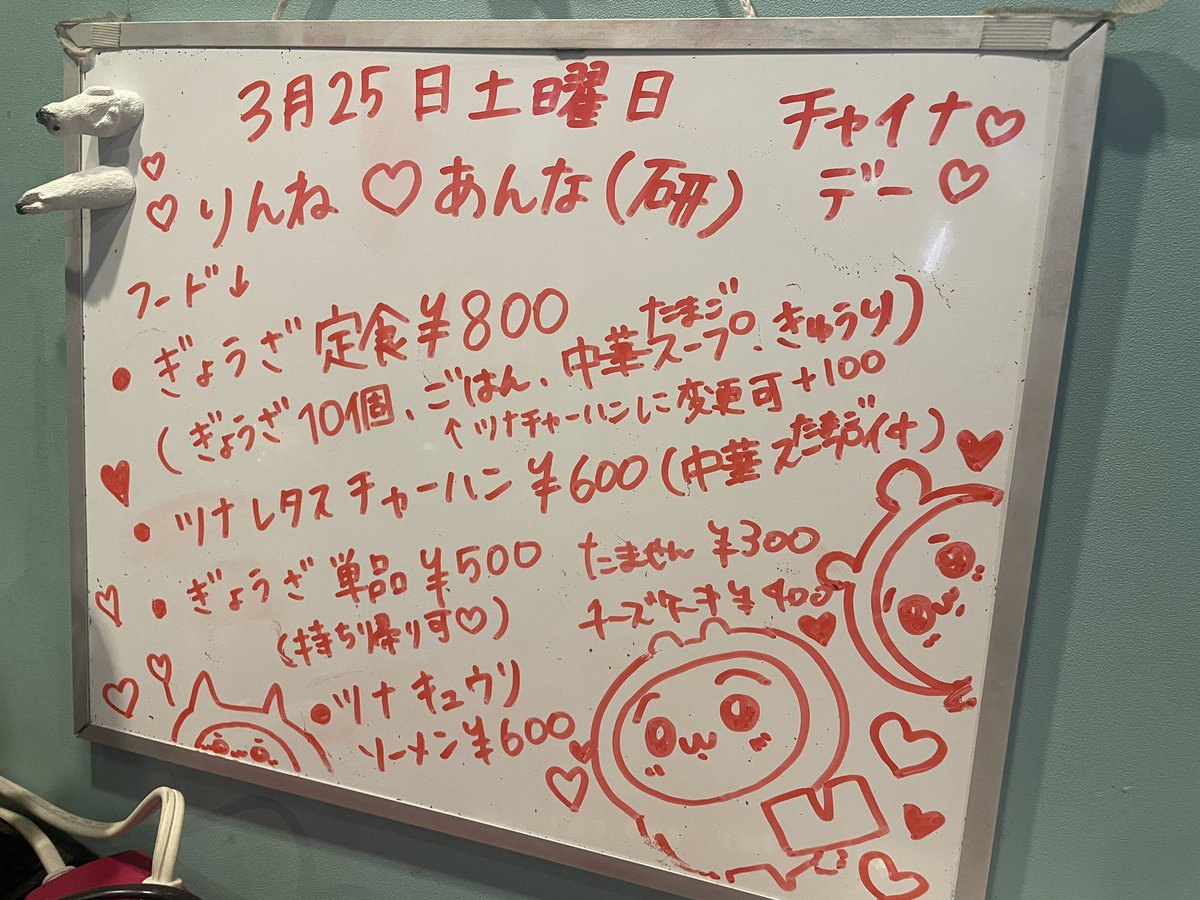 3月25日土曜日
チャイナ♡
デー♡
♡りんね♡あんな(研)
フード↓
• ぎょうざ定食¥800
(ぎょうざ10個、ごはん、中華たまごスープ、きゅうり)
↑ツナチャーハンに変更可+100
• ツナレタスチャーハン¥600(中華たまごスープ付)
• ぎょうざ単品¥500
(持ち帰り可♡)
たません¥300
チーズケーキ¥400
• ツナキュウリ
ソーメン¥600